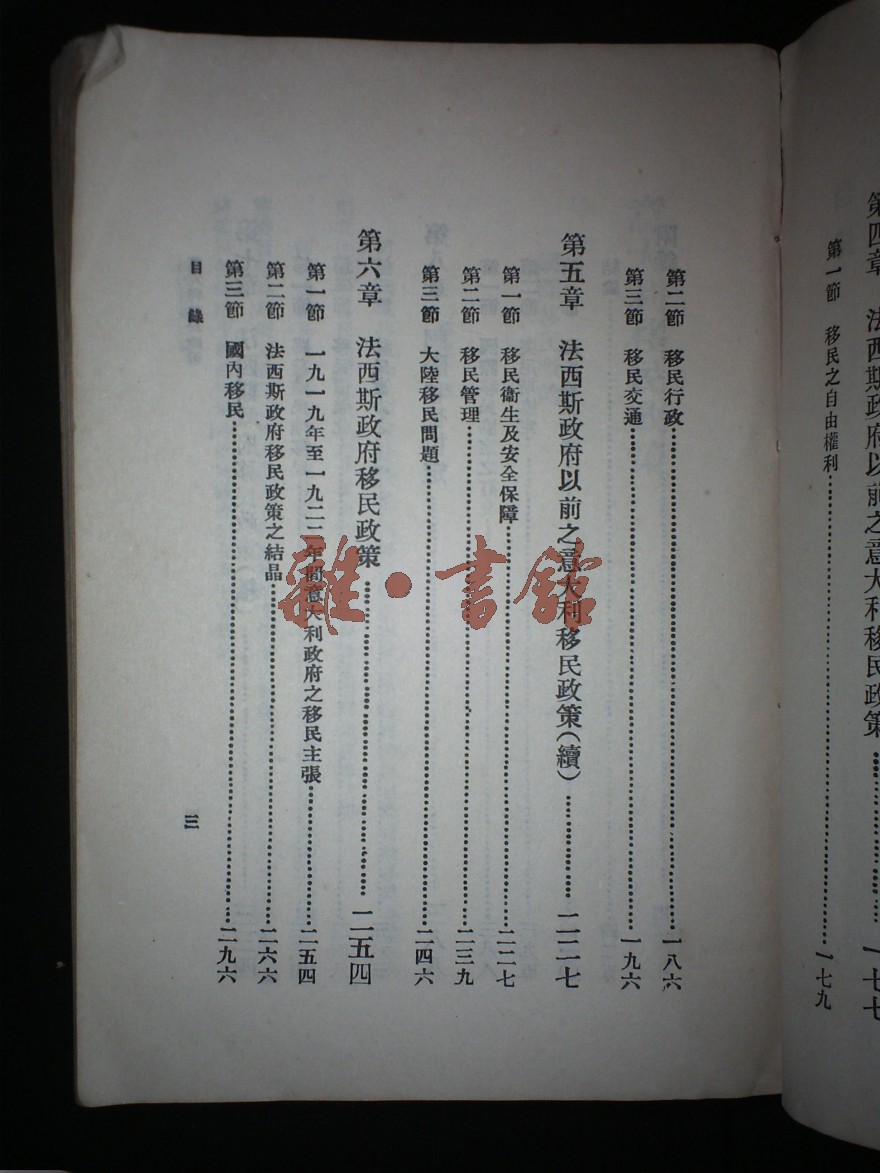 第四章　法西斯政府以前之意大利移民政策……一七七
第一節　移民之自由權利……一七九
第二節　移民行政……一八六
第三節　移民交通……一九六
第五章　法西斯政府以前之意大利移民政策(續)……二二七
第一節　移民衞生及安全保障……二二七
第二節　移民管理……二三九
第三節　大陸移民問題……二四六
第六章　法西斯政府移民政策……二五四
第一節　一九一九年至一九二二年間意大利政府之移民主張……二五四
第二節　法西斯政府移民政策之結晶……二六六
第三節　國內移民……二九六
目錄
三
雜·書館